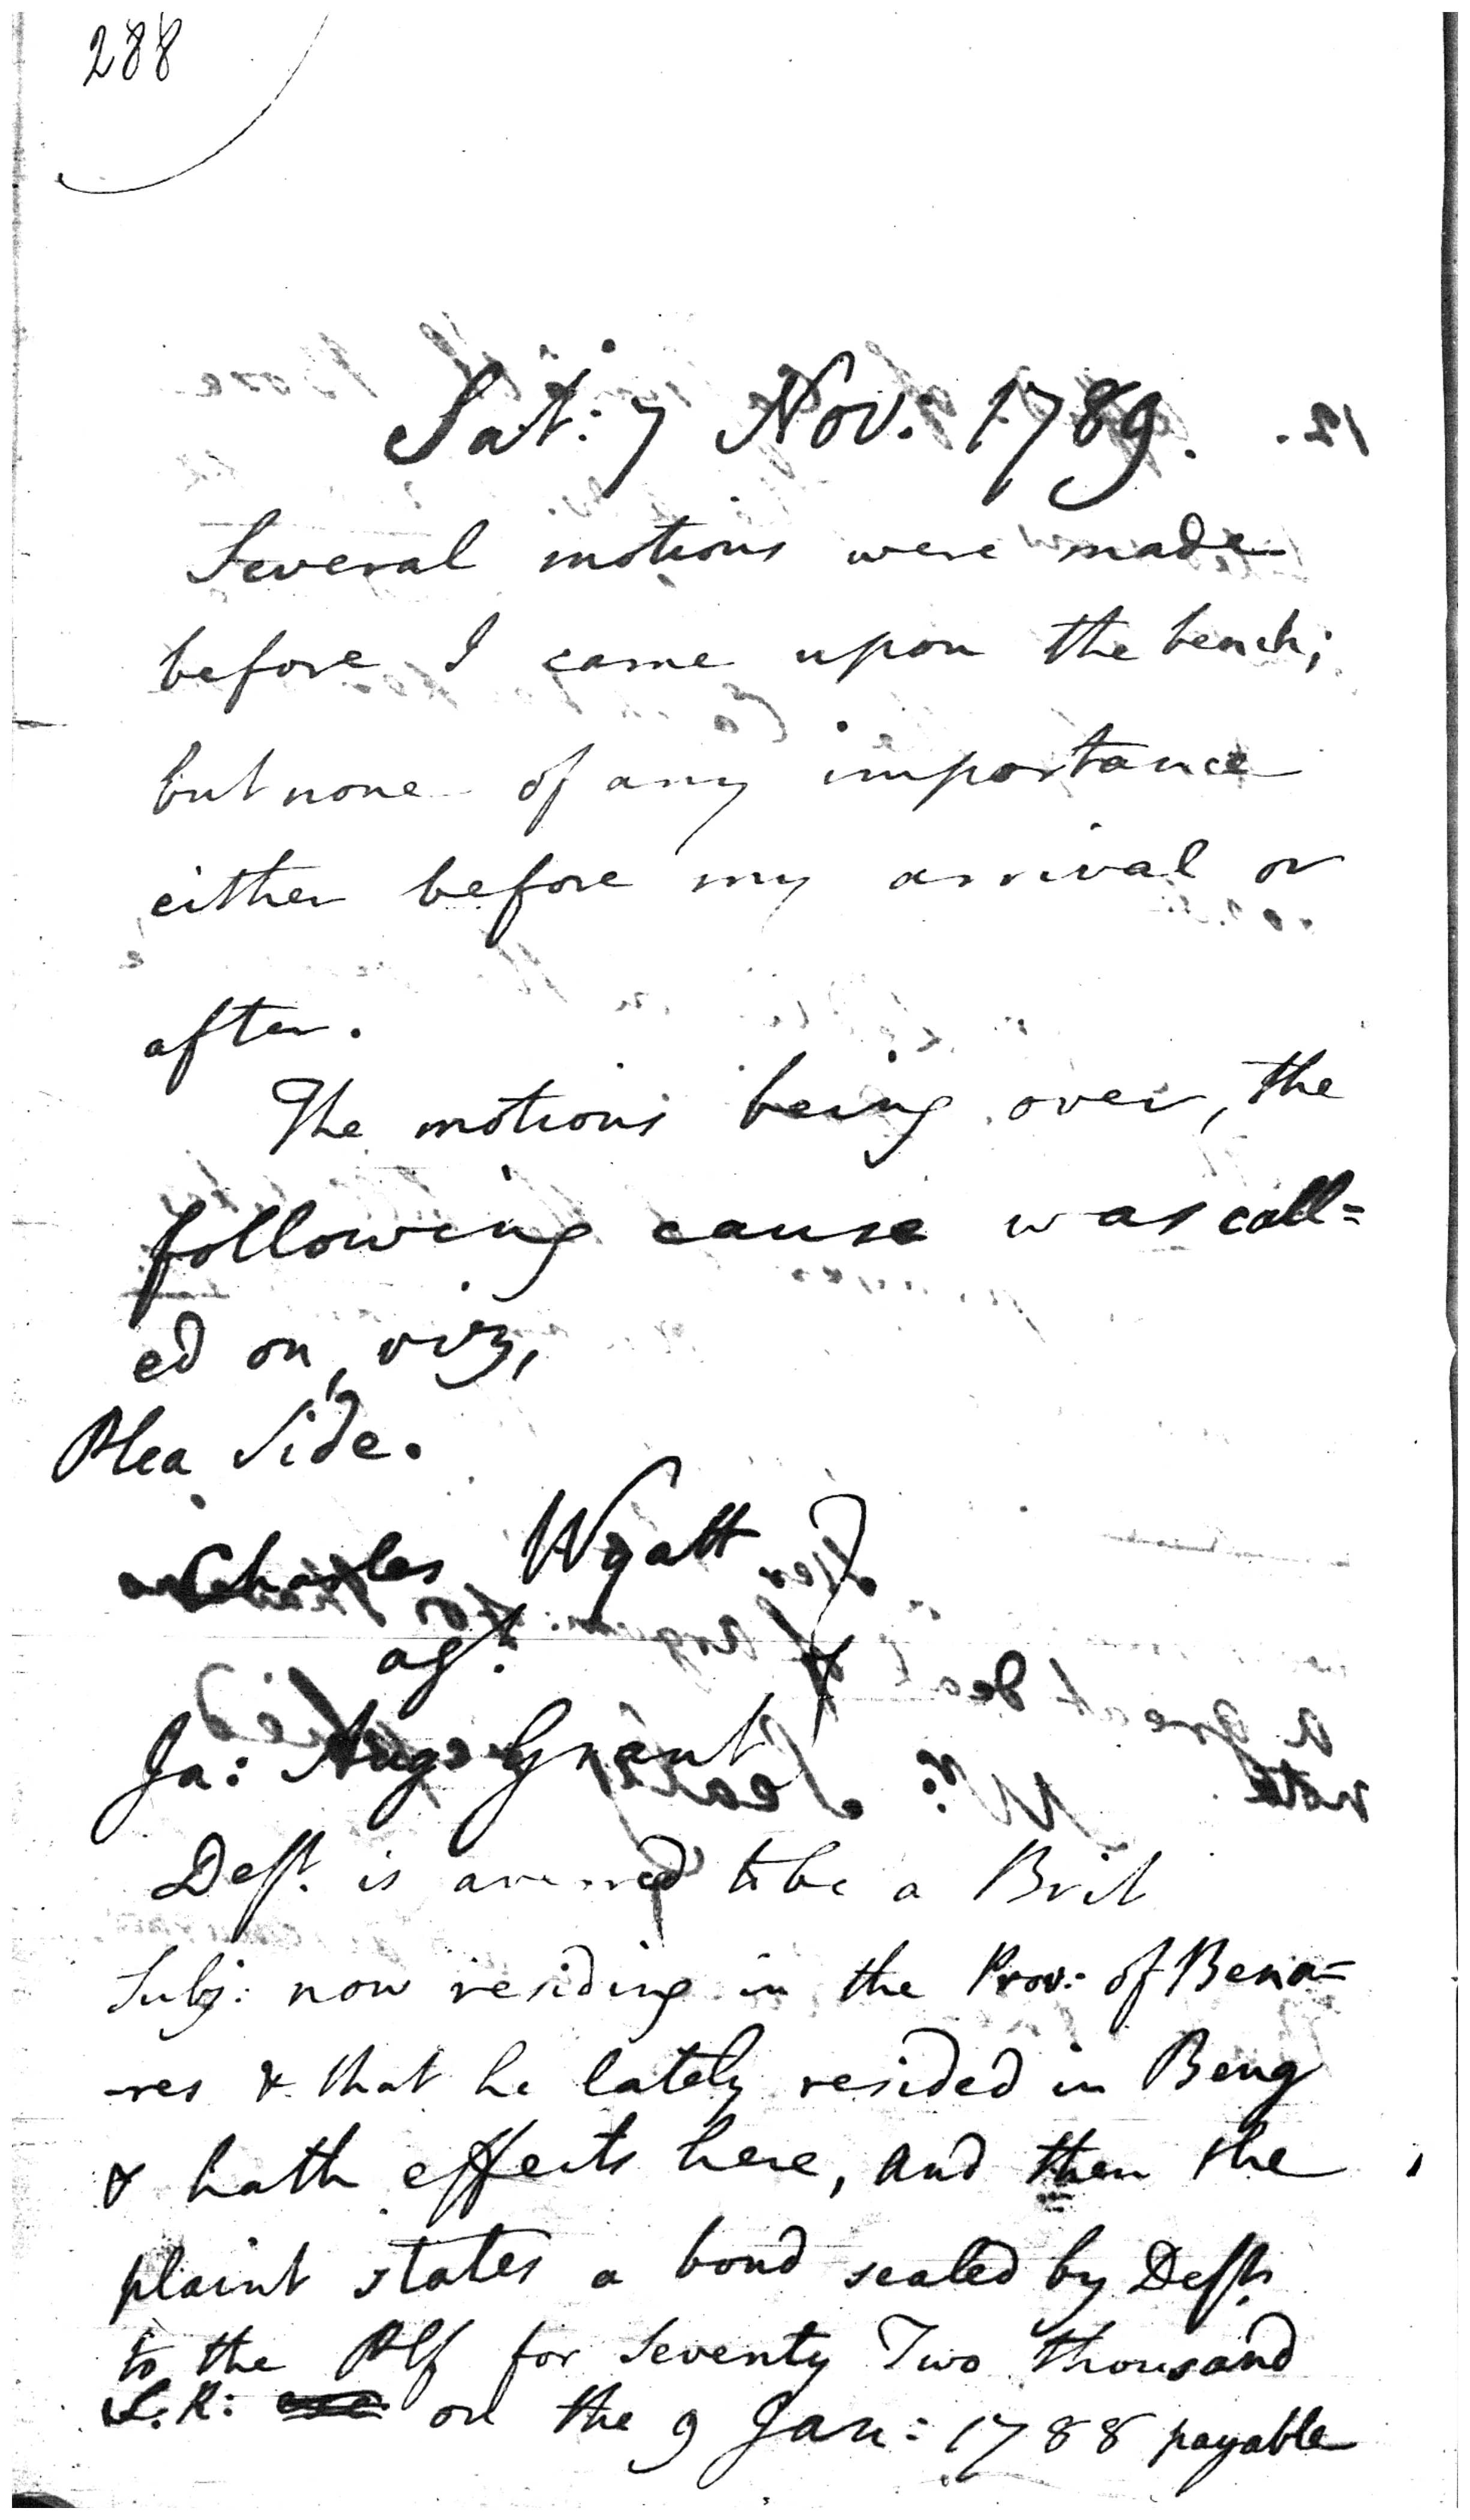 288
Sat: 7 Nov: 1789.
Several motions were made
before I came upon the bench;
but none of any importance
either before my arrival or
after.
The motions being over, the
following cause was call=
ed on, viz,
Plea Side.
Charles Wyatt
agt.
Ja: Augs Grant
Deft. is averred to be a Brit
Subj: now residing in the Prov: of Bena=
-res & that he lately resided in Beng
& hath effects here, and then the
plaint states a bond sealed by Deft.
to the Plf for Seventy Two thousand
S.R: on the 9 Jan: 1788 payable